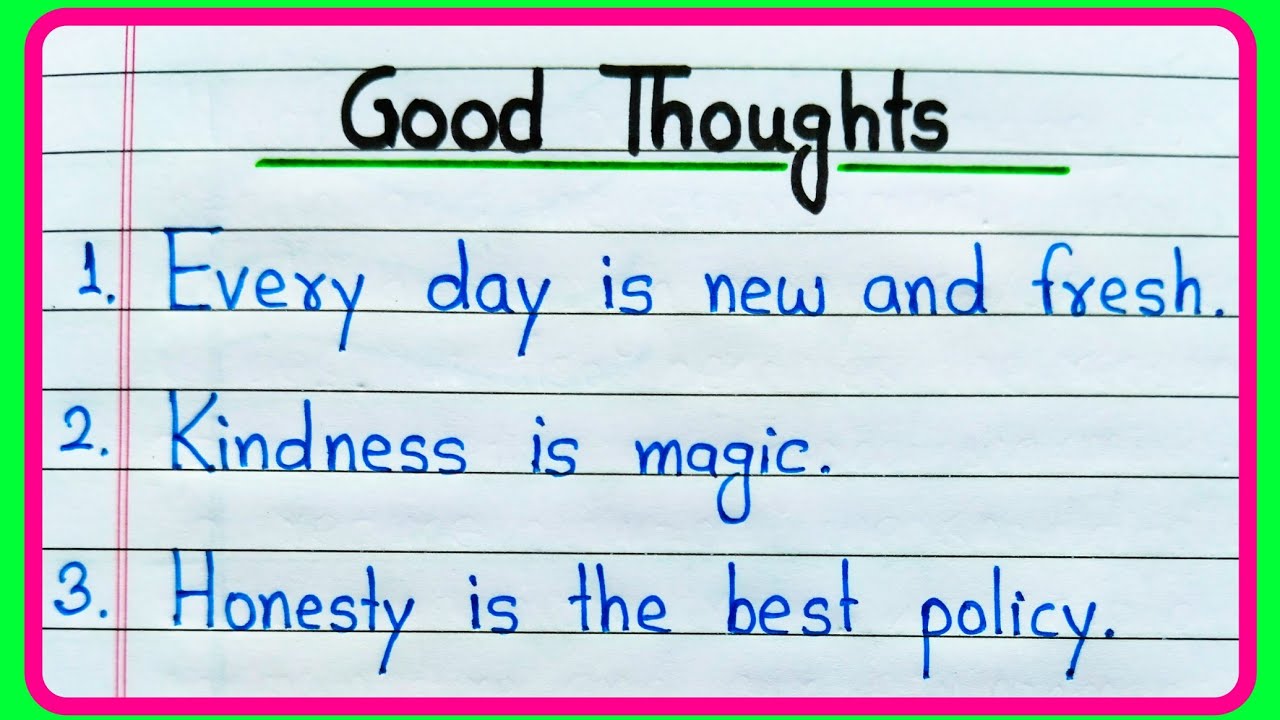 Good Thoughts
1. Every day is new and fresh.
2. Kindness is magic.
3. Honesty is the best policy.